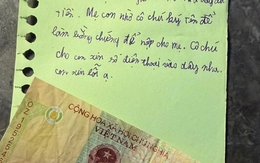 tiền. Mẹ con nhờ cô chú ký tên để
làm bằng chứng để nộp cho mẹ. Cô chú
cho con xin số điện thoại vào đây nha.
con xin lỗi ạ.
CỘNG HÒA XÃ HỘI CHỦ NGHĨA
VIỆT NAM